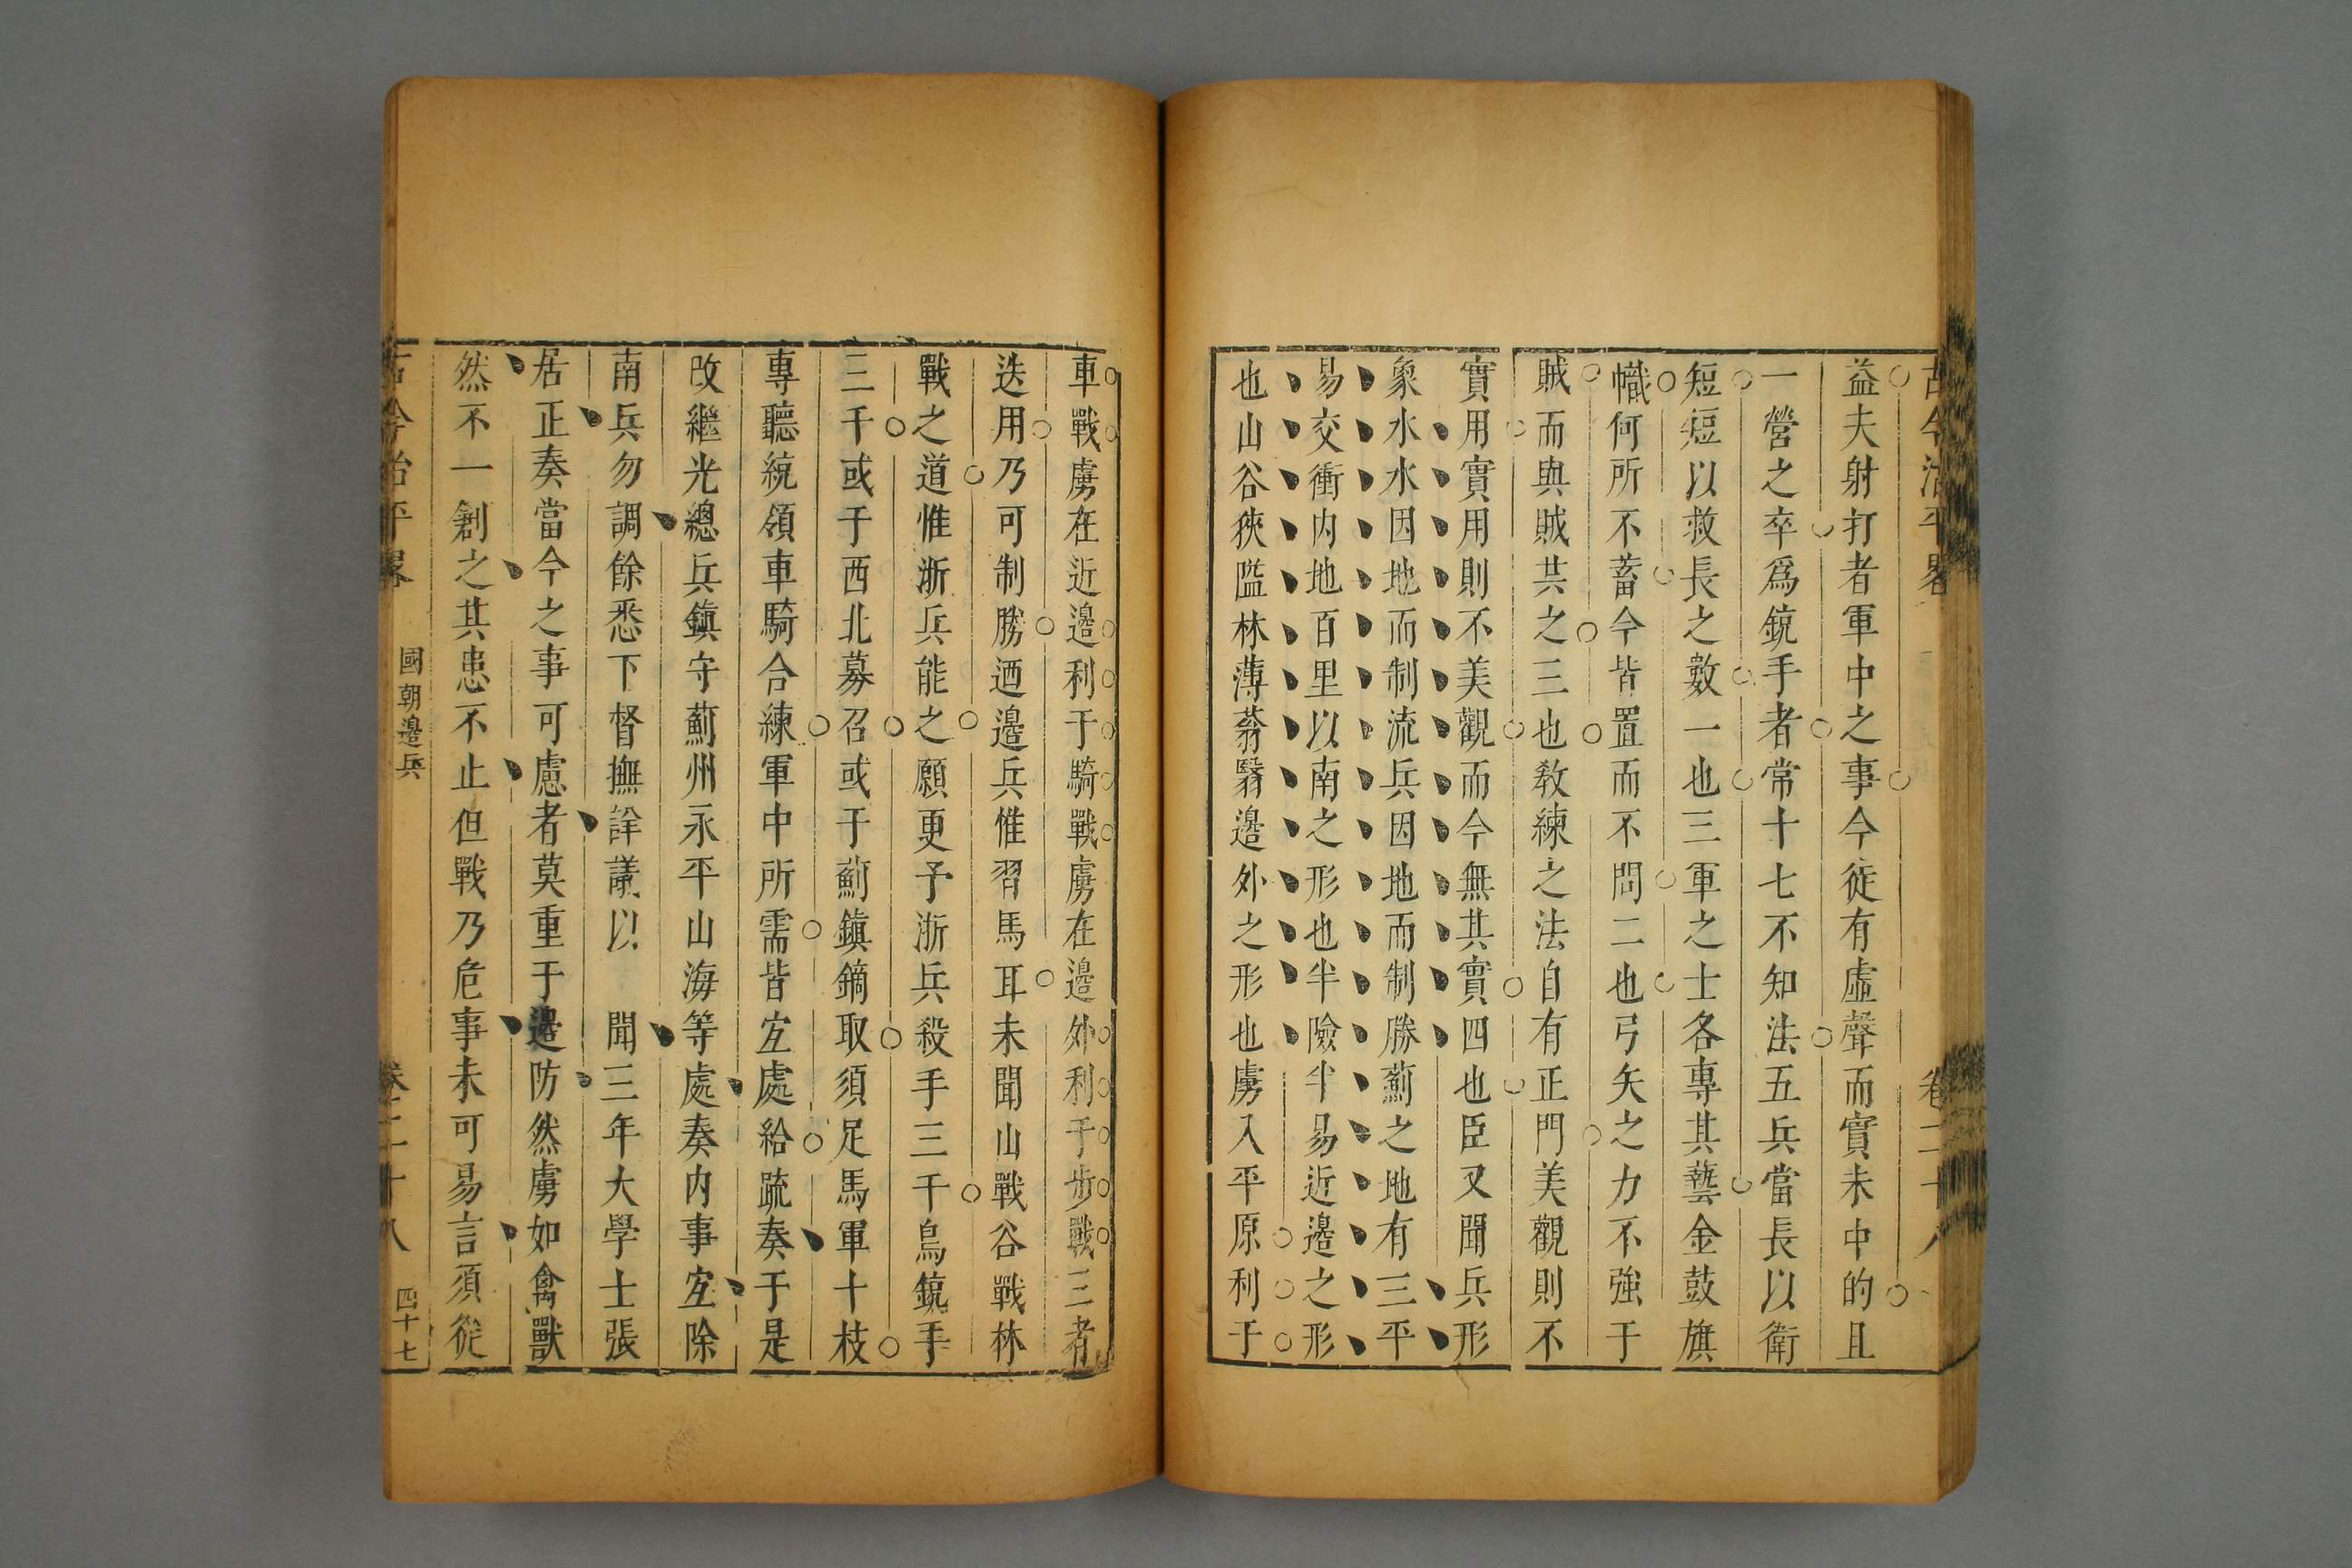 古今治平畧 卷二十八
益夫射打者軍中之事今徒有虛聲而實未中的且
一營之卒爲銃手者常十七不知法五兵當長以衛
短短以救長之數一也三軍之士各專其藝金鼓旗
幟何所不蓄今皆置而不問二也弓矢之力不強于
賊而與賊共之三也教練之法自有正門美觀則不
實用實用則不美觀而今無其實四也臣又聞兵形
象水水因地而制流兵因地而制勝薊之地有三平
易交衝内地百里以南之形也半險半易近邉之形
也山谷狹隘林薄蓊翳邉外之形也虜入平原利于
車戰虜在近邉利于騎戰虜在邉外利于步戰三者
迭用乃可制勝迺邉兵惟習馬耳未聞山戰谷戰林
戰之道惟浙兵能之願更予浙兵殺手三千鳥銃手
三千或于西北募召或于薊鎮鏑取須足馬軍十枝
專聽統領車騎合練軍中所需皆宐處給疏奏于是
改繼光總兵鎮守薊州永平山海等處奏内事宐除
南兵勿調餘悉下督撫詳議以　聞三年大學士張
居正奏當今之事可慮者莫重于邉防然虜如禽獸
然不一創之其患不止但戰乃危事未可易言須從
古今治平畧 國朝邉兵 卷二十八 四十七